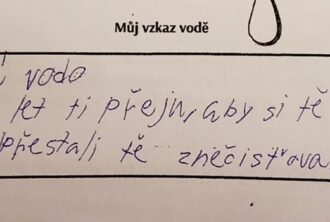 Můj vzkaz vodě
vodo
let ti přeju, aby si tě
přestali tě znečisťova